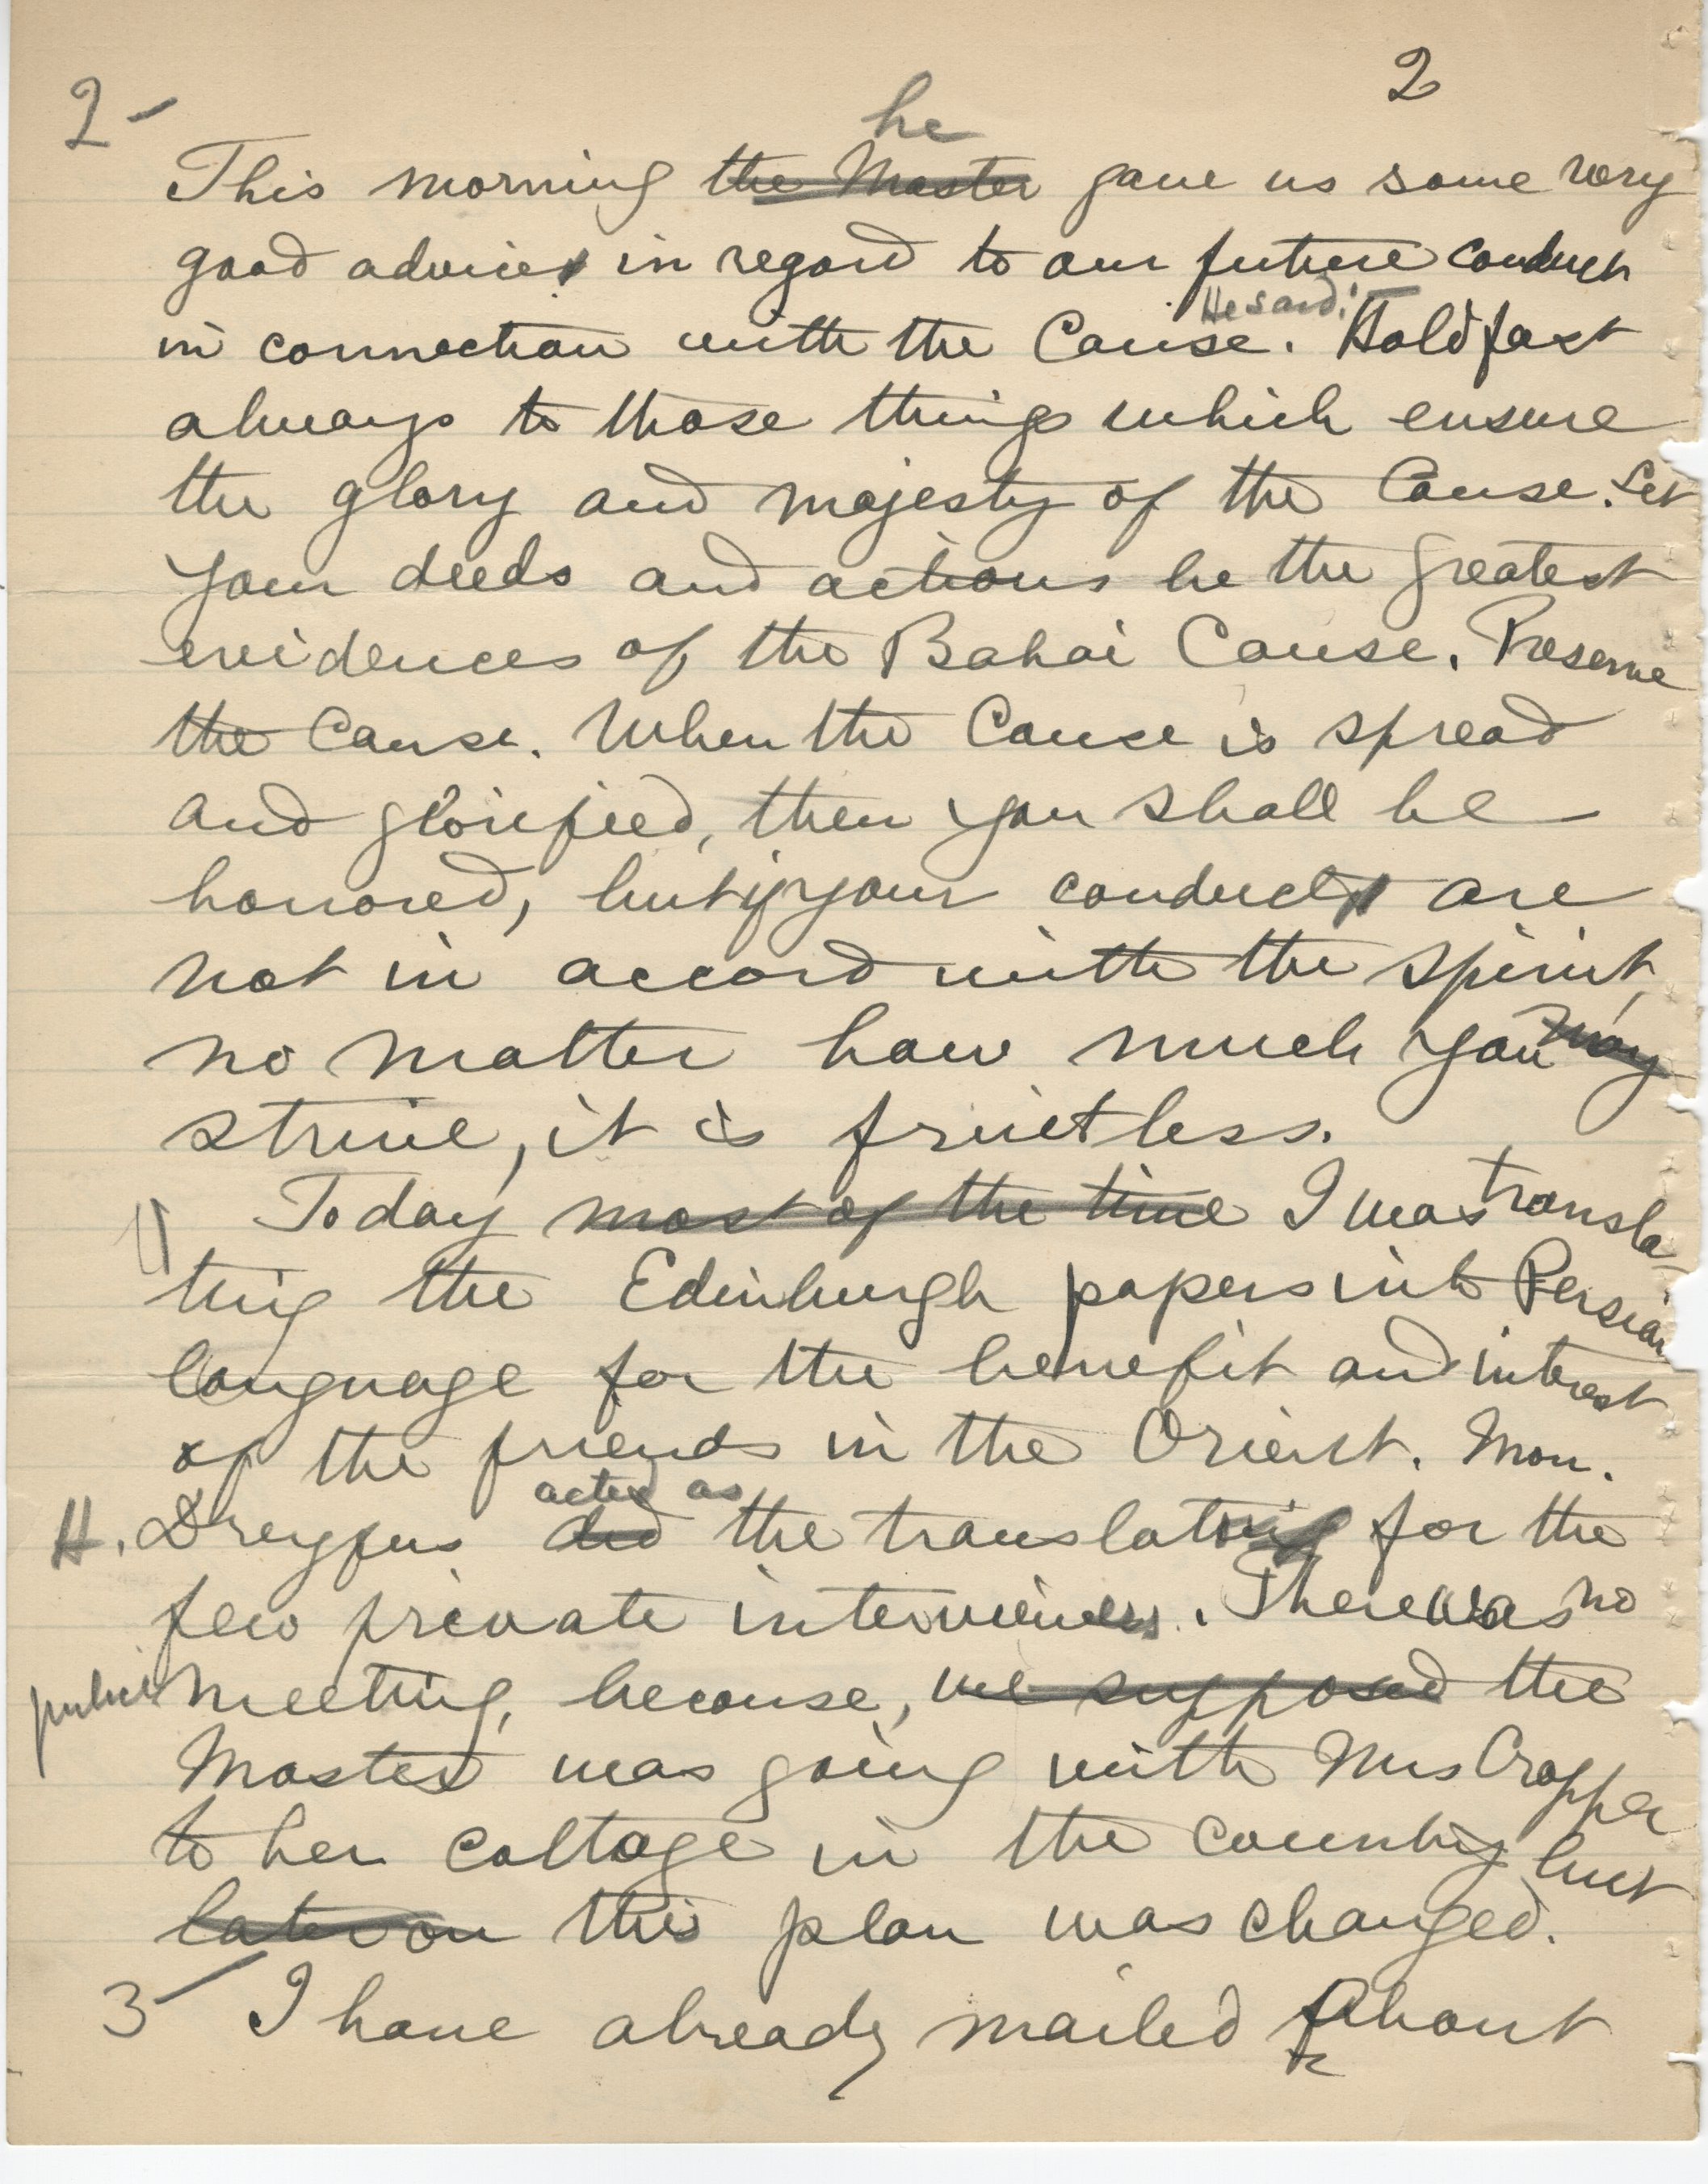 2- 2
he
This morning the Master gave us some very
good advices in regard to our future conduct
He said:-
in connection with the Cause. Hold fast
always to those things which ensure
the glory and majesty of the Cause. Let
your deeds and actions be the greatest
evidences of the Bahai Cause. Preserve
the Cause. When the Cause is spread
and glorified, then you shall be
honored, but if your conducts are
not in accord with the spirit,
no matter how much you may
strive, it is fruitless.
Today most of the time I was transla-
ting the Edinburgh papers into Persian
language for the benefit and interest
of the friends in the Orient. Mon.
acted as
H. Dreyfus did the translating for the
few private interviews. There was no
public meeting, because, we supposed the
Master was going with Mrs Cropper
to her cottage in the country but
later on this plan was changed.
3- I have already mailed About